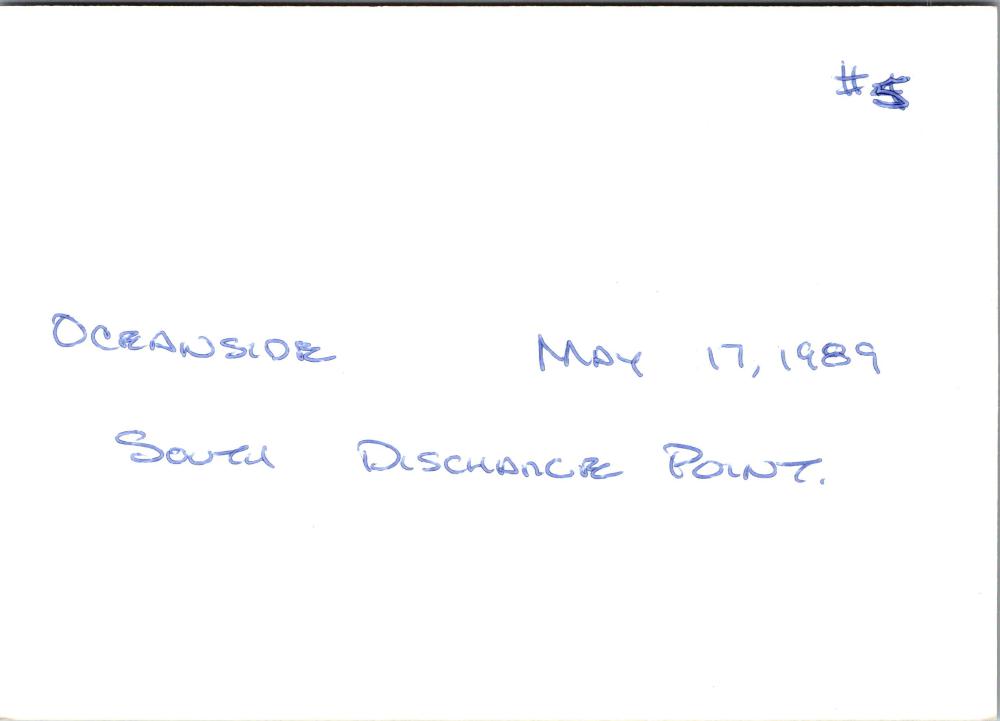 #5
OCEANSIDE MAY 17, 1989
SOUTH DISCHARGE POINT.